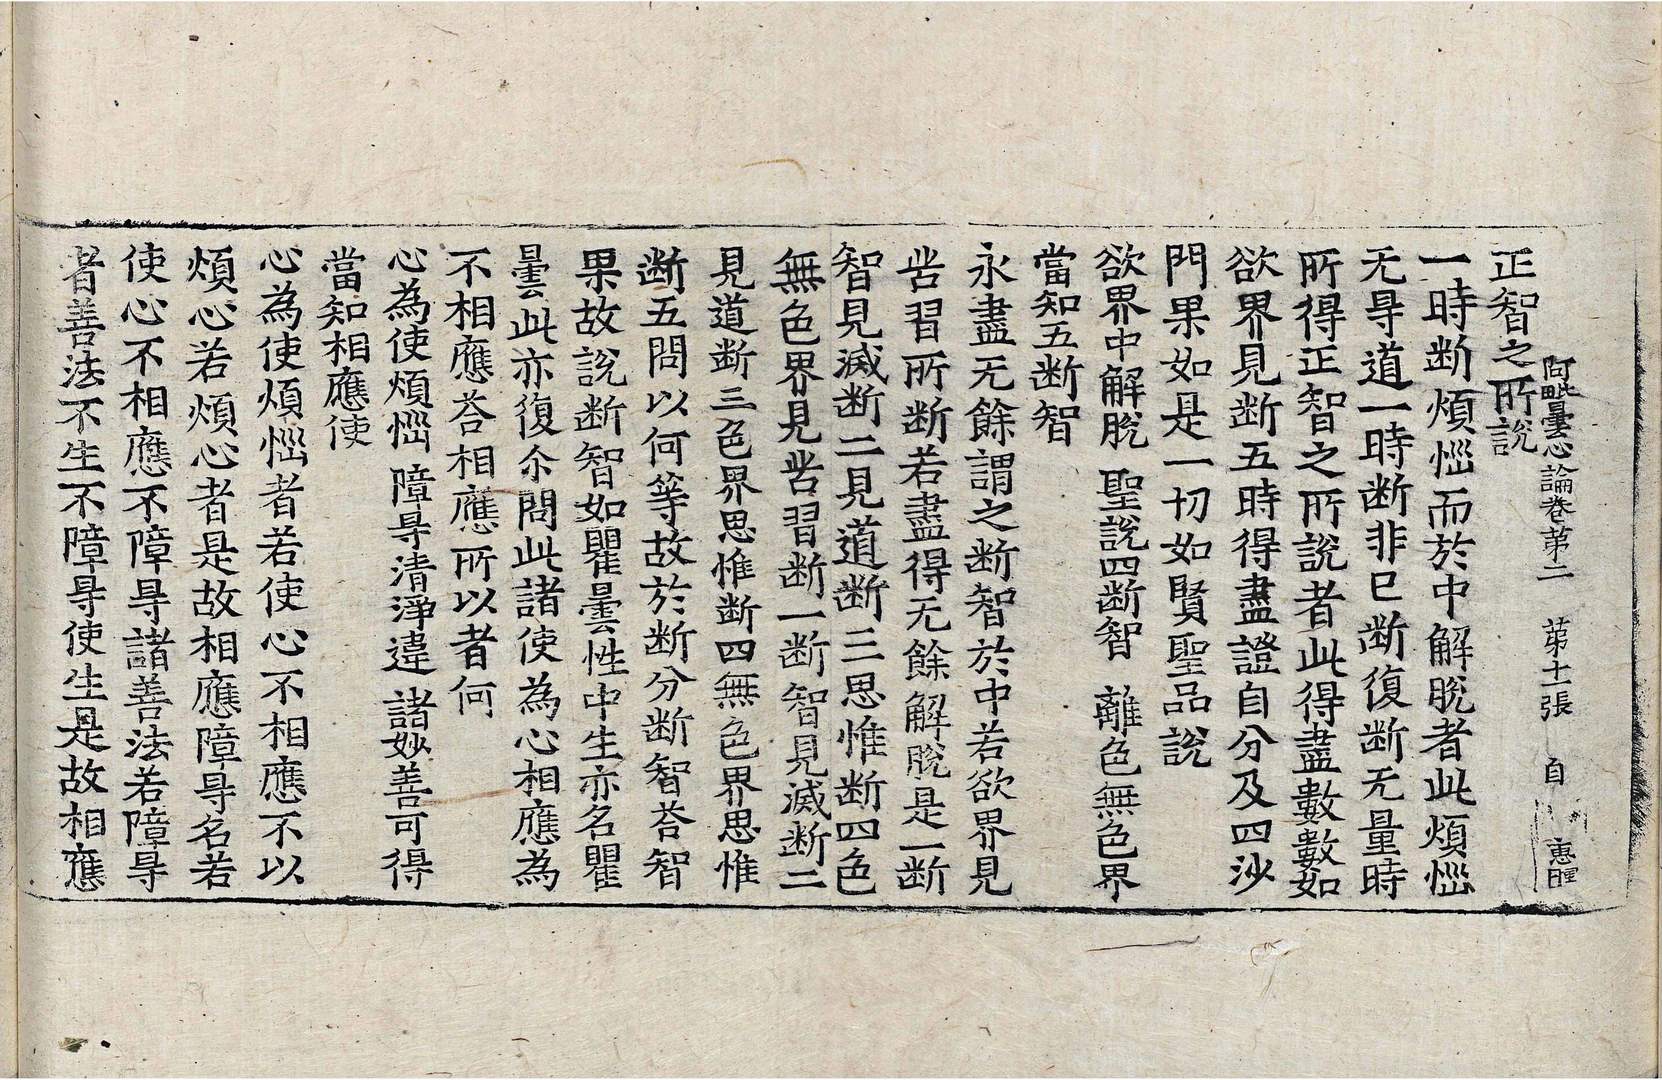 阿毗曇心論卷第二 第十一張 自 惠
正智之所說
一時断煩惱而於中解脫者此煩惱
无㝵道一時断非巳断復断无量時
所得正智之所說者此得盡數數如
欲界見断五時得盡證自分及四沙
門果如是一切如賢聖品說
欲界中解脫 聖說四断智 離色無色界
當知五断智
永盡无餘謂之断智於中若欲界見
苦習所断若盡得无餘解脫是一断
智見滅断二見道断三思惟断四色
無色界見苦習断一断智見滅断二
見道断三色界思惟断四無色界思惟
断五問以何等故於断分断智荅智
果故說断智如瞿曇性中生亦名瞿
曇此亦復尒問此諸使為心相應為
不相應荅相應所以者何
心為使煩惱 障㝵清淨違 諸妙善可得
當知相應使
心為使煩惱者若使心不相應不以
煩心若煩心者是故相應障㝵名若
使心不相應不障㝵諸善法若障㝵
者善法不生不障㝵使生是故相應